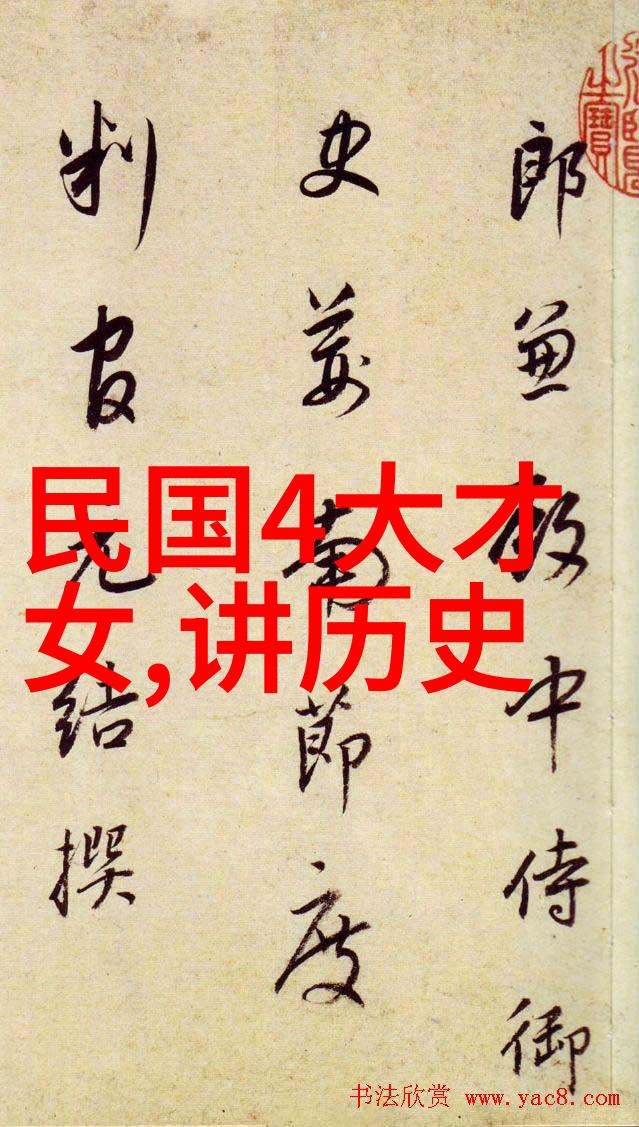 郎兼殿中侍御
史荊南節度
判官元結撰
民国4大才
女,讲历史
书法欣赏 www.yac8.com